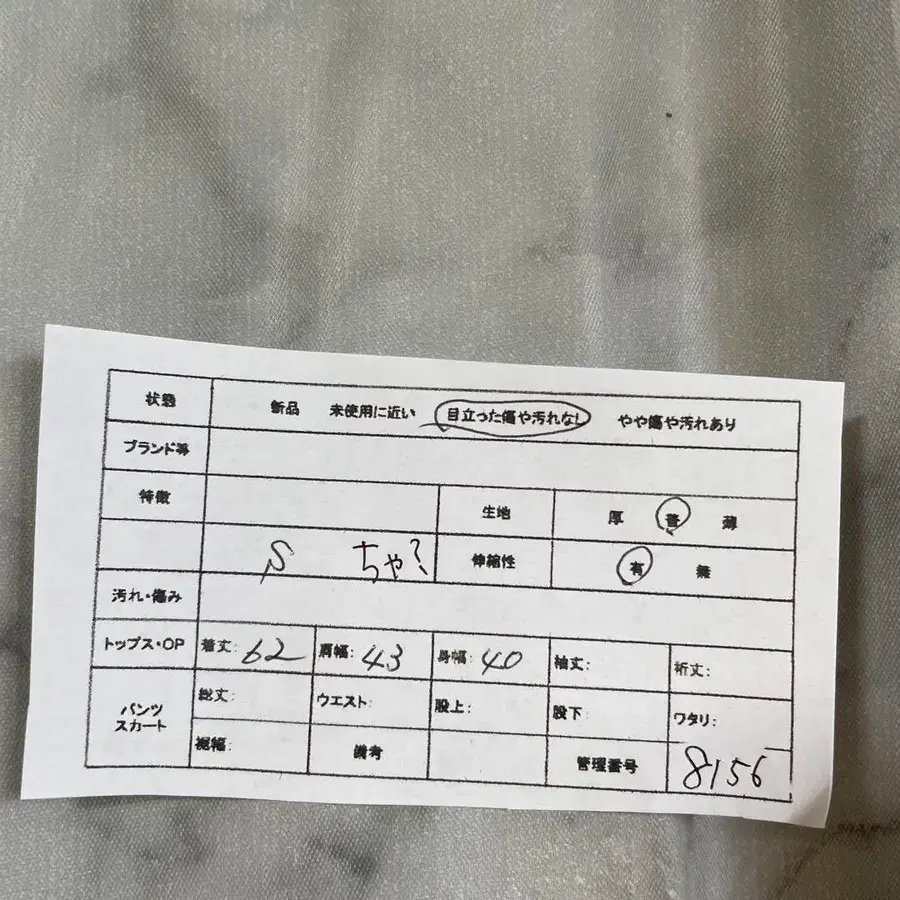 状態 新品 未使用に近い 目立った傷や汚れなし やや傷や汚れあり
ブランド等
特徴 生地 厚 普 薄
S ちゃ? 伸縮性 有 無
汚れ・傷み
トップス・OP 着丈: 62 肩幅: 43 身幅: 40 袖丈: 裄丈:
パンツ スカート 総丈: ウエスト: 股上: 股下: ワタリ:
裾幅: 備考 管理番号 8156